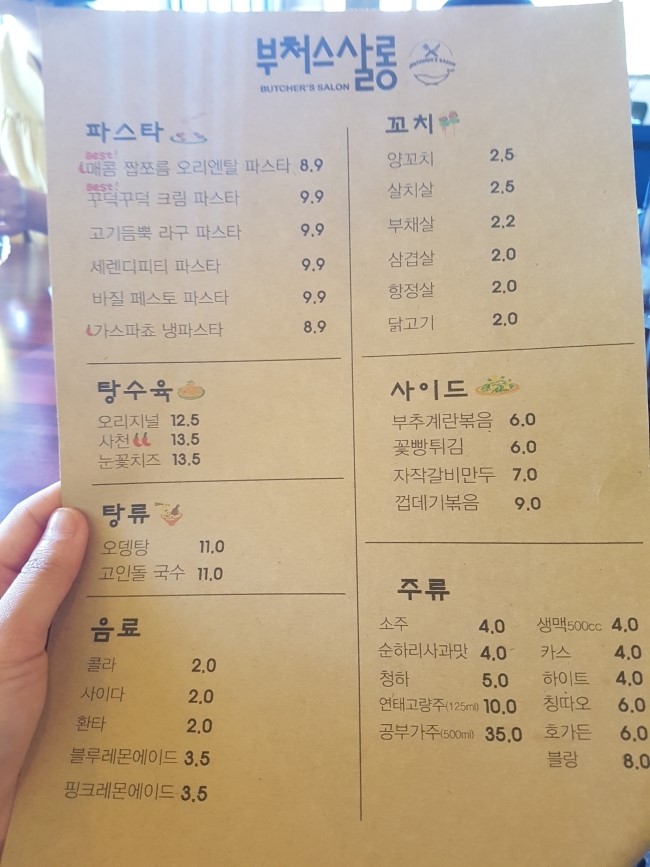 부처스살롱
BUTCHER'S SALON
파스타
Best!
매콤 짭쪼름 오리엔탈 파스타 8.9
Best!
꾸덕꾸덕 크림 파스타 9.9
고기듬뿍 라구 파스타 9.9
세렌디피티 파스타 9.9
바질 페스토 파스타 9.9
가스파쵸 냉파스타 8.9
탕수육
오리지널 12.5
사천 13.5
눈꽃치즈 13.5
탕류
오뎅탕 11.0
고인돌 국수 11.0
음료
콜라 2.0
사이다 2.0
환타 2.0
블루레몬에이드 3.5
핑크레몬에이드 3.5
꼬치
양꼬치 2.5
살치살 2.5
부채살 2.2
삼겹살 2.0
항정살 2.0
닭고기 2.0
사이드
부추계란볶음 6.0
꽃빵튀김 6.0
자작갈비만두 7.0
껍데기볶음 9.0
주류
소주 4.0
순하리사과맛 4.0
청하 5.0
연태고량주(125ml) 10.0
공부가주(500ml) 35.0
생맥500cc 4.0
카스 4.0
하이트 4.0
칭따오 6.0
호가든 6.0
블랑 8.0